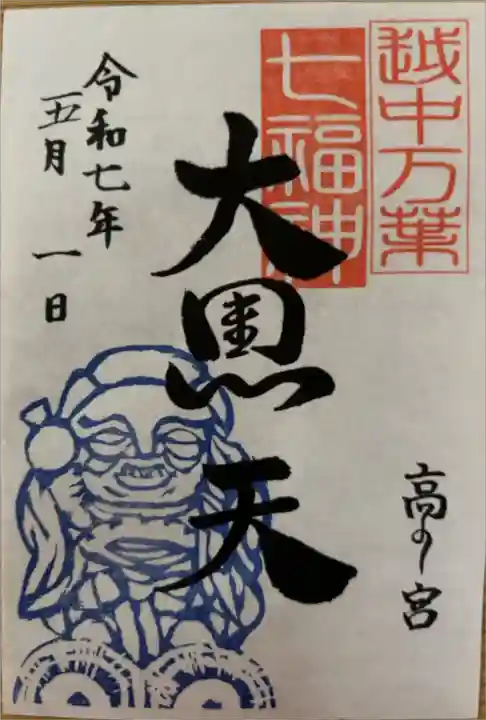 越中万葉
七福神
大黒天
高の宮
令和七年
五月一日